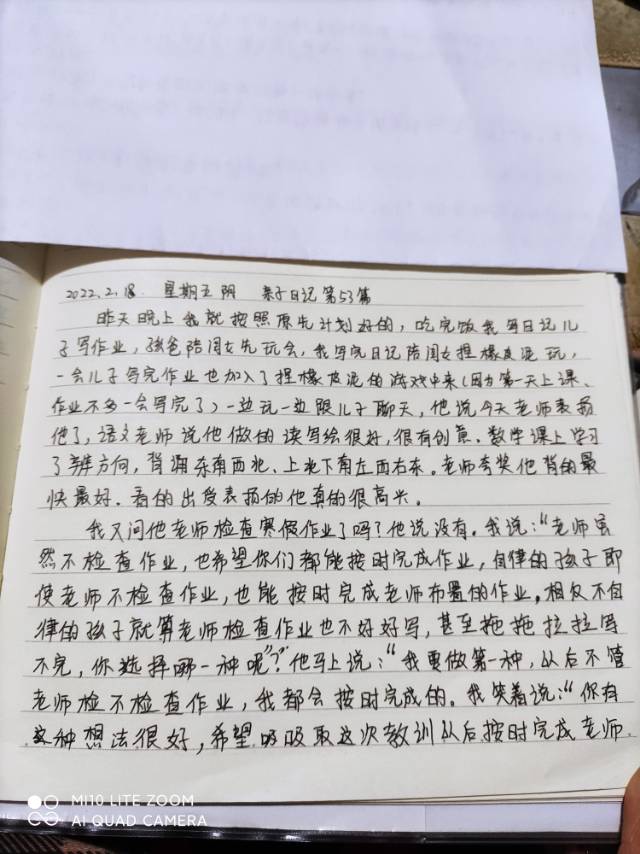 2022.2.18. 星期五 阴 亲子日记第53篇
昨天晚上我就按照原先计划好的，吃完饭我写日记儿
子写作业，孩爸陪闺女先玩会，我写完日记陪闺女捏橡皮泥玩，
一会儿子写完作业也加入了捏橡皮泥的游戏中来（因为第一天上课、
作业不多一会写完了）一边玩一边跟儿子聊天，他说今天老师表扬
他了，语文老师说他做的读写绘很好，很有创意。数学课上学习
了辨方向，背诵东南西北、上北下南左西右东。老师夸奖他背的最
快最好。看的出受表扬的他真的很高兴。
我又问他老师检查寒假作业了吗？他说没有。我说：“老师虽
然不检查作业，也希望你们都能按时完成作业，自律的孩子即
使老师不检查作业，也能按时完成老师布置的作业。相反不自
律的孩子就算老师检查作业也不好好写，甚至拖拖拉拉写
不完，你选择哪一种呢”？他马上说：“我要做第一种，从后不管
老师检不检查作业，我都会按时完成的。我笑着说：“你有
这种想法很好，希望吸取这次教训从后按时完成老师
MI 10 LITE ZOOM
AI QUAD CAMERA